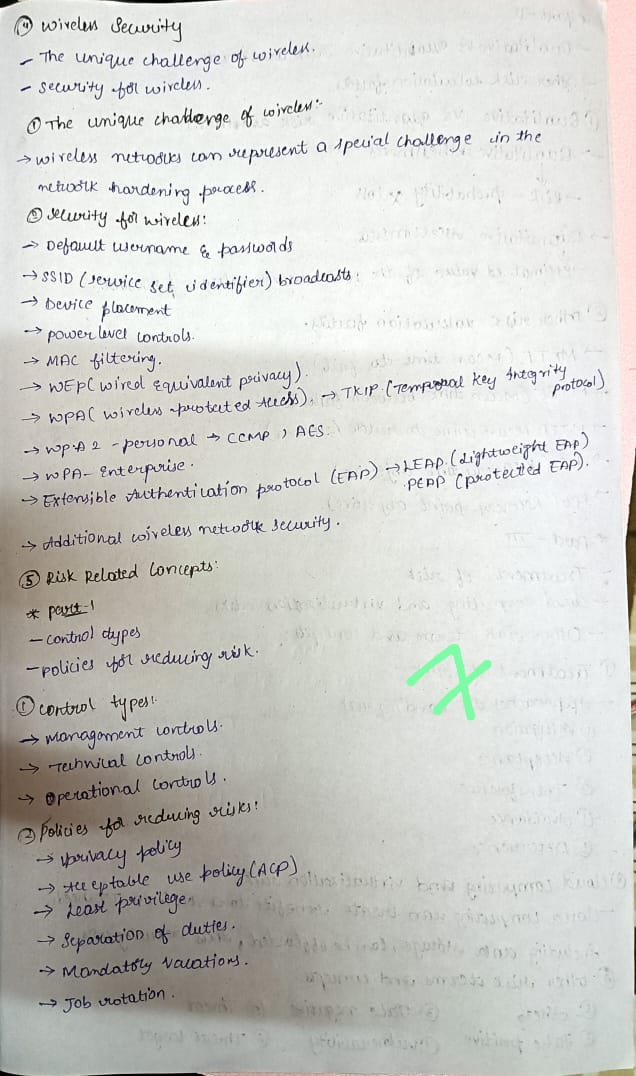 ④ Wireless Security
- The unique challenge of wireless.
- security for wireless.
① The unique challenge of wireless:-
→ wireless networks can represent a special challenge in the
network hardening process.
② Security for wireless:
→ Default username & passwords
→ SSID (service set identifier) broadcasts:
→ Device placement
→ power level controls.
→ MAC filtering.
→ WEP (wired Equivalent privacy).
→ WPA (wireless protected Access). → TKIP. (Temporal Key Integrity protocol)
→ WPA 2 - personal → CCMP, AES.
→ WPA- Enterprise.
→ Extensible Authentication protocol (EAP) → LEAP. (Lightweight EAP)
PEAP (protected EAP).
→ Additional wireless network security.
⑤ Risk Related Concepts:
* part-1
- control types
- policies for reducing risk.
① control types:
→ Management controls.
→ Technical controls.
→ Operational controls.
② Policies for reducing risks:
→ privacy policy
→ Acceptable use policy (ACP)
→ Least privilege
→ Separation of duties.
→ Mandatory vacations.
→ Job rotation.
7